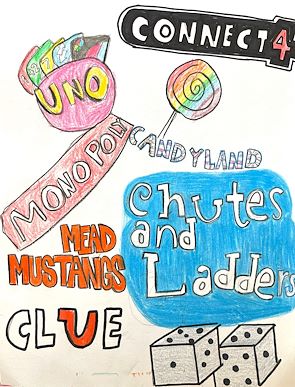 CONNECT 4
UNO
MONOPOLY
CANDYLAND
Chutes
and
Ladders
MEAD
MUSTANGS
CLUE